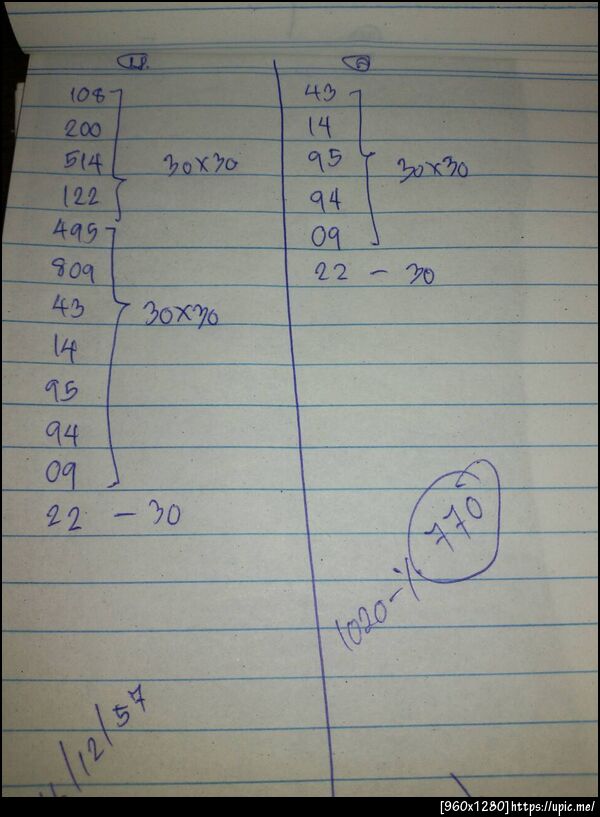 108
200
514
122
30×30
495
809
43
14
95
94
09
30×30
22 - 30
43
14
95
94
09
30×30
22 - 30
1020-%
770
/12/57
[960x1280]https://upic.me/